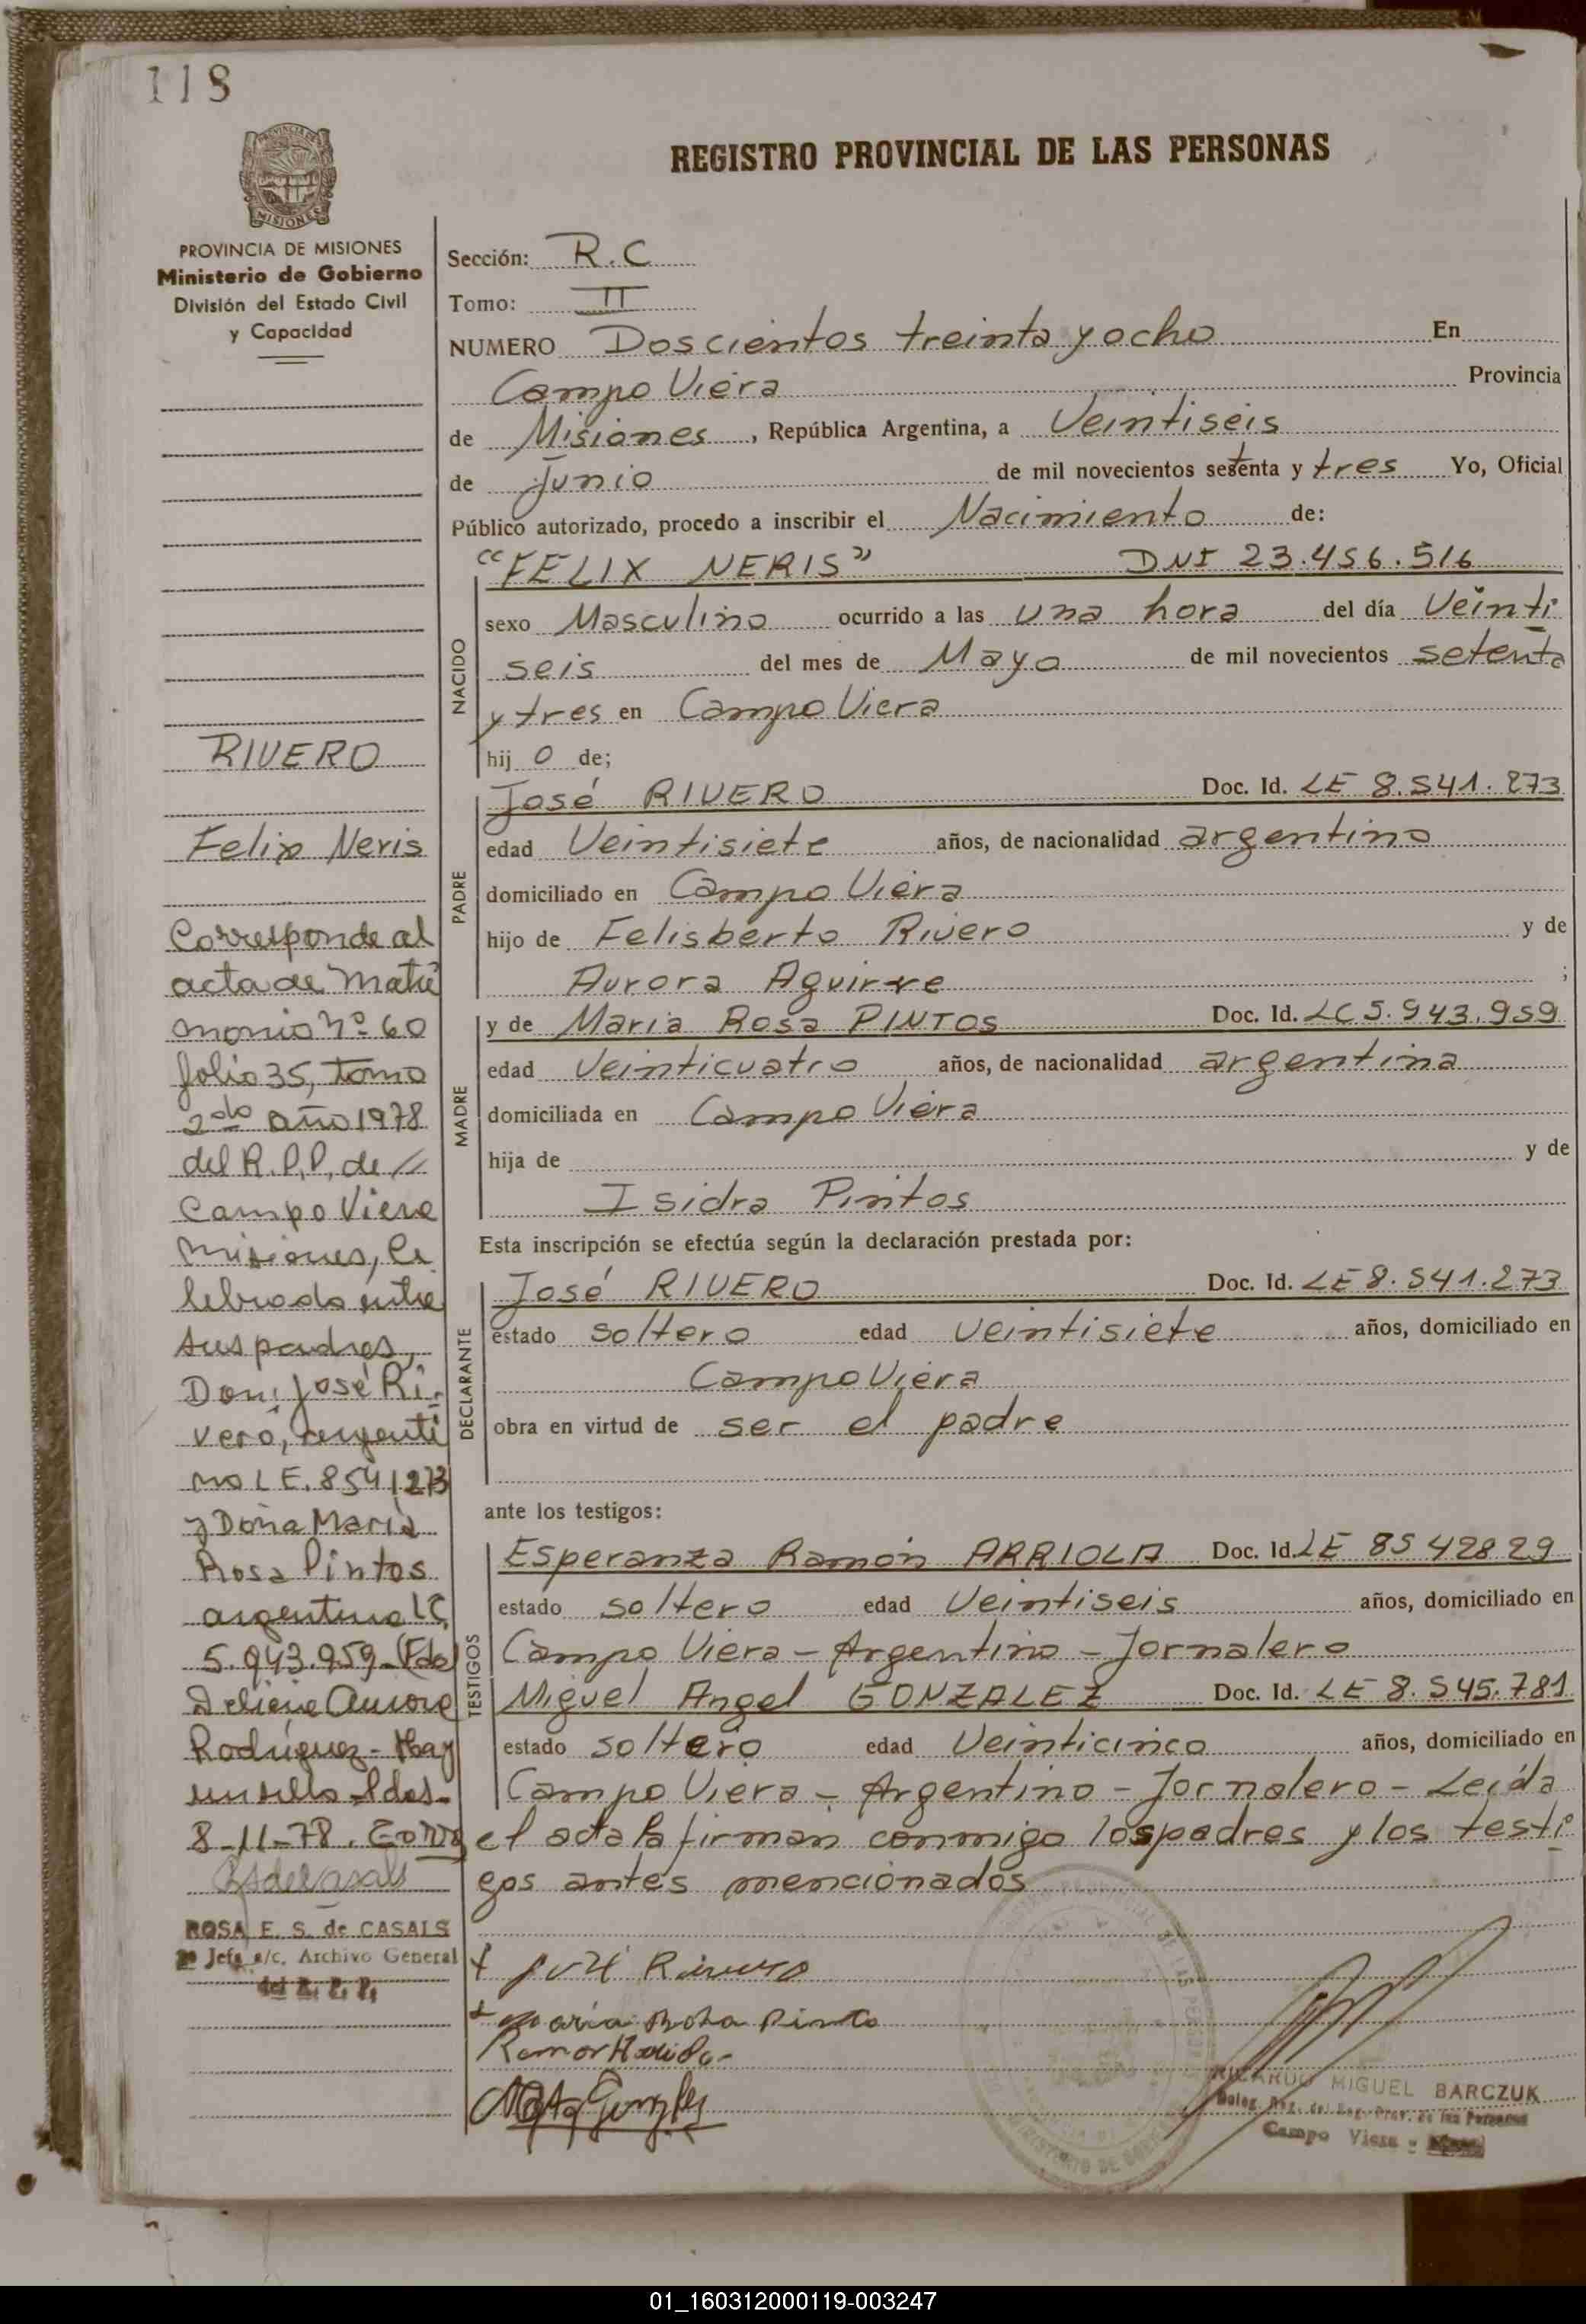 118
REGISTRO PROVINCIAL DE LAS PERSONAS
PROVINCIA DE MISIONES
Ministerio de Gobierno
División del Estado Civil
y Capacidad
RIVERO
Felix Neris
Corresponde al
acta de Matri
monio Nº 60
folio 35, tomo
2do año 1978
del R.P.P. de //
Campo Viera
Misiones, ce
lebrado entre
sus padres,
Don: José Ri-
vero, argenti
no L E. 8541273
y Doña María
Rosa Pintos
argentina LC
5.943.959-(Fdo)
Aurora
Rodríguez - Hay
un sello. Pdas.
8-11-78.
ROSA E. S. de CASALS
Jefa a/c. Archivo General
del R. P. P.
Sección: R.C
Tomo: II
NUMERO Doscientos treinta y ocho En
Campo Viera Provincia
de Misiones, República Argentina, a Veintiseis
de Junio de mil novecientos setenta y tres Yo, Oficial
Público autorizado, procedo a inscribir el Nacimiento de:
"FELIX NERIS" DNI 23.456.516
NACIDO
sexo Masculino ocurrido a las una hora del día Veinti
seis del mes de Mayo de mil novecientos setenta
y tres en Campo Viera
hij o de;
PADRE
José RIVERO Doc. Id. LE 8.541.273
edad Veintisiete años, de nacionalidad argentino
domiciliado en Campo Viera
hijo de Felisberto Rivero y de
Aurora Aguirre ;
MADRE
y de Maria Rosa PINTOS Doc. Id. LC 5.943.959
edad Veinticuatro años, de nacionalidad argentina
domiciliada en Campo Viera
hija de y de
Isidra Pintos
Esta inscripción se efectúa según la declaración prestada por:
DECLARANTE
José RIVERO Doc. Id. LE 8.541.273
estado soltero edad veintisiete años, domiciliado en
Campo Viera
obra en virtud de ser el padre
ante los testigos:
TESTIGOS
Esperanza Ramón ARRIOLA Doc. Id. LE 8542829
estado soltero edad Veintiseis años, domiciliado en
Campo Viera - Argentino - Jornalero
Miguel Angel GONZALEZ Doc. Id. LE 8.545.781
estado soltero edad Veinticinco años, domiciliado en
Campo Viera - Argentino - Jornalero - Leída
el acta la firman conmigo los padres y los testi
gos antes mencionados
José Rivero
maria Rosa Pinto
RICARDO MIGUEL BARCZUK
Deleg. Reg. del Reg. Prov. de las Personas
Campo Viera -
01_160312000119-003247